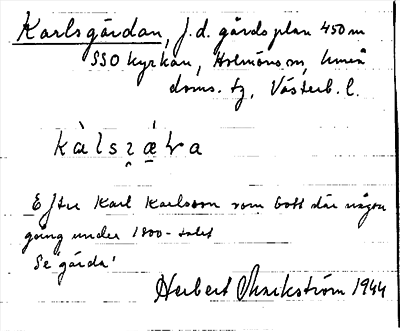 Karlsgårdan, f.d. gårdsplan 450 m
SSO kyrkan, Holmöns sn, Umeå
doms. tg, Västerb. l.
Efter Karl Karlsson som bott där någon
gång under 1800-talet
Se 'gärda'
Herbert Markström 1944